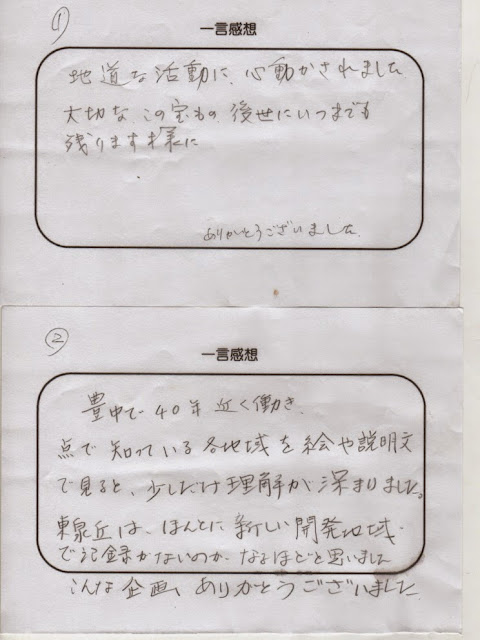 ①
一言感想
地道な活動に、心動かされました
大切な、この宝もの 後世にいつまでも
残ります様に
ありがとうございました。
②
一言感想
豊中で40年近く働き、
点で知っている各地域を絵や説明文
で見ると、少しだけ理解が深まりました。
東泉丘は、ほんとに新しい開発地域、
で記録がないのか、なるほどと思いました
こんな企画、ありがとうございました。